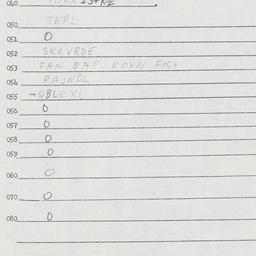 040
050 TEPL
051 O
052 SKOVRDE
053 FAN ФAP KOXN FIST
054 RAJNDL
055 -QBLEXL
056 O
057 O
058 O
059 O
060 O
070 O
080 O